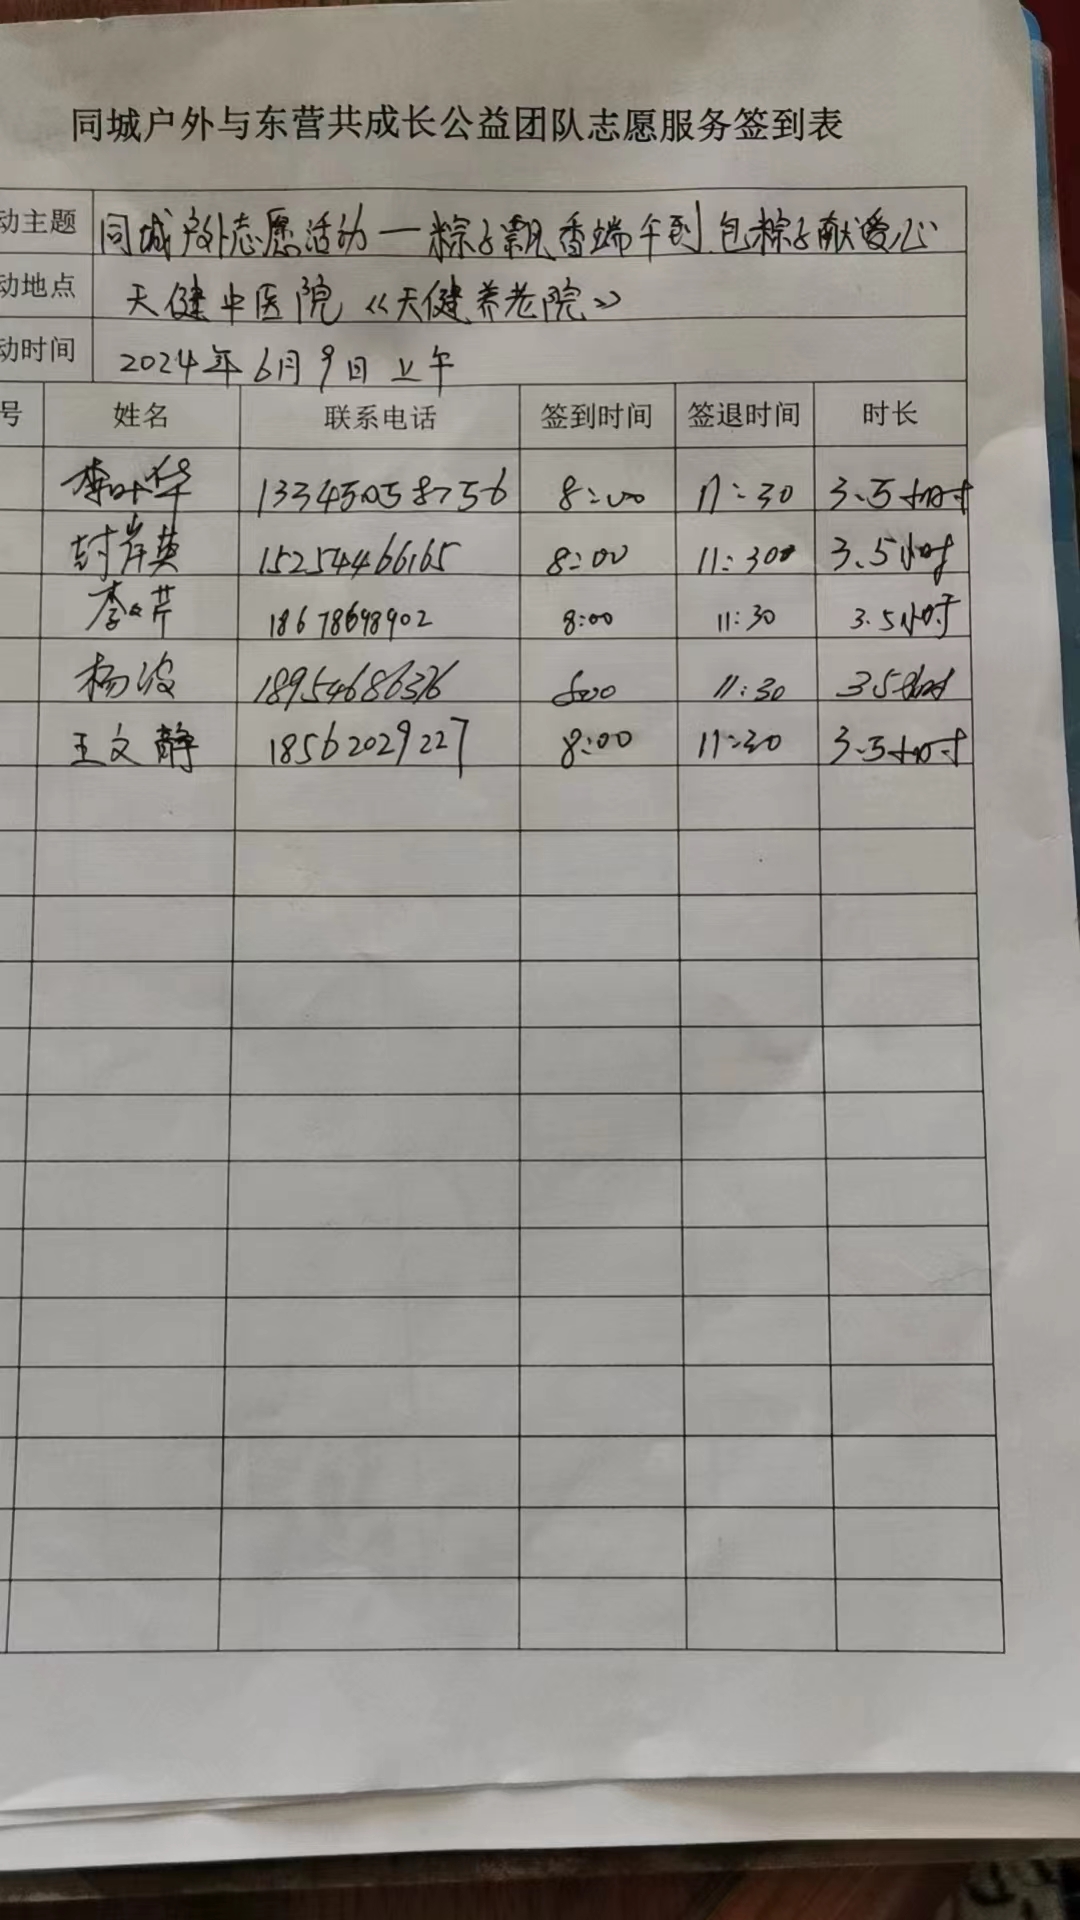 同城户外与东营共成长公益团队志愿服务签到表
动主题 同城户外志愿活动—粽子飘香端午到 包粽子献爱心
动地点 天健中医院《天健养老院》
动时间 2024年6月9日上午
号 姓名 联系电话 签到时间 签退时间 时长
李叶华 13345058756 8:00 11:30 3.5小时
封岸英 15254466165 8:00 11:30 3.5小时
李文芹 18678698902 8:00 11:30 3.5小时
杨波 18954686376 8:00 11:30 3.5小时
王文静 18562029227 8:00 11:30 3.5小时